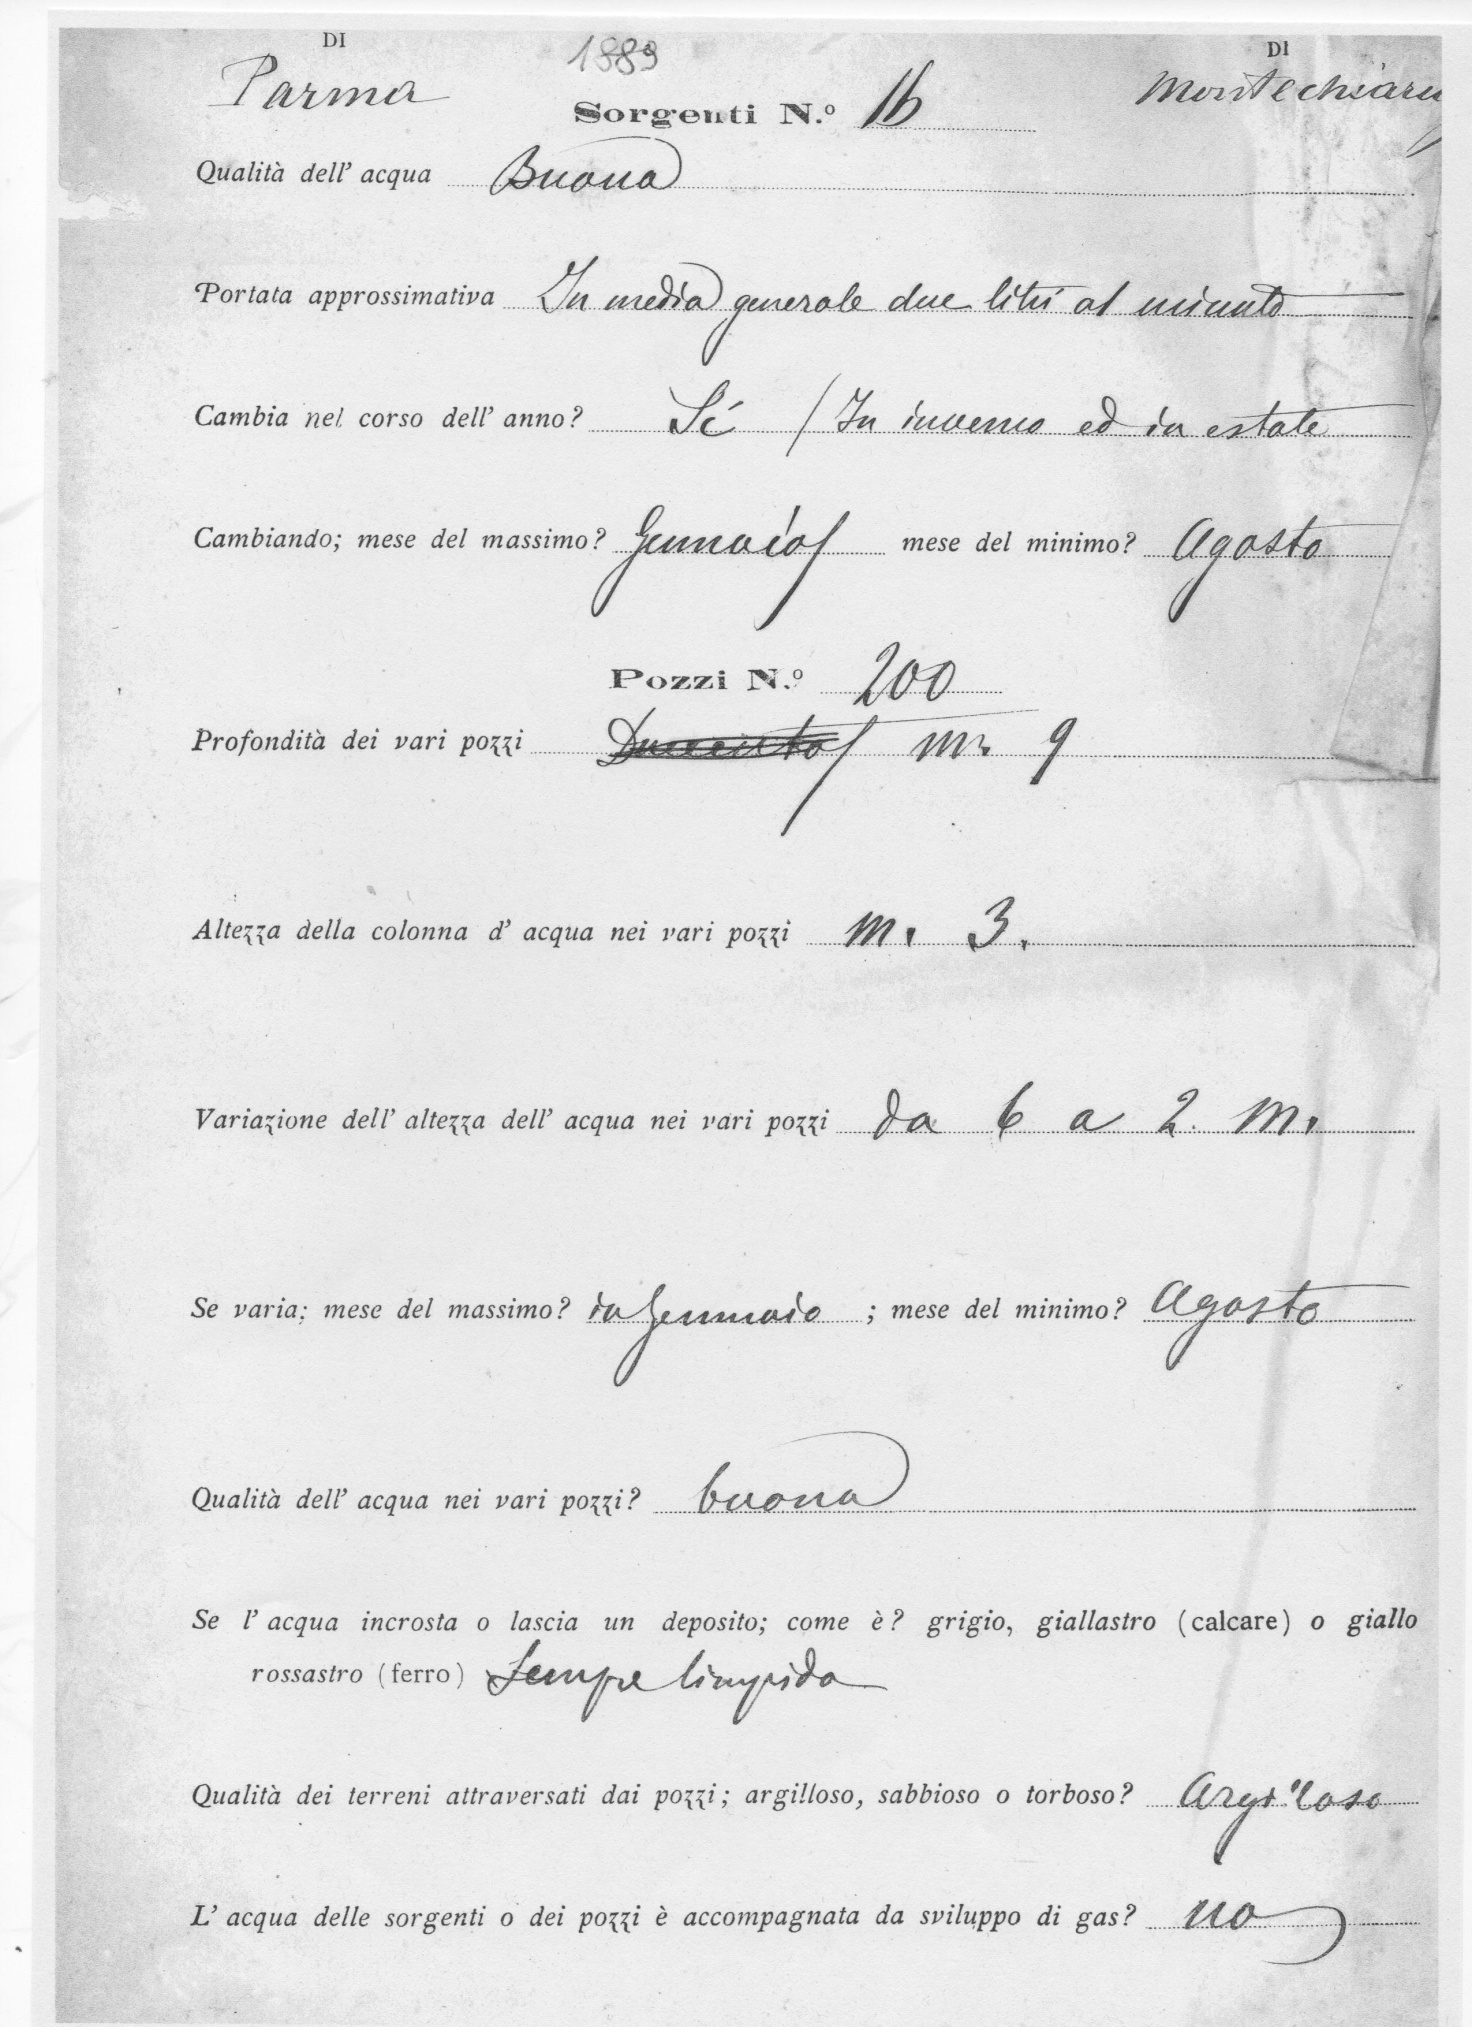 DI 1889 DI
Parma Montechiaru
Sorgenti N.º 16
Qualità dell' acqua Buona
Portata approssimativa In media generale due litri al minuto
Cambia nel corso dell' anno? Sí / In inverno ed in estate
Cambiando; mese del massimo? Gennaio / mese del minimo? Agosto
Pozzi N.º 200
Profondità dei vari pozzi Duecento / m. 9
Altezza della colonna d' acqua nei vari pozzi m. 3.
Variazione dell' altezza dell' acqua nei vari pozzi da 6 a 2. m.
Se varia; mese del massimo? in Gennaio ; mese del minimo? Agosto
Qualità dell' acqua nei vari pozzi? buona
Se l' acqua incrosta o lascia un deposito; come è? grigio, giallastro (calcare) o giallo
rossastro (ferro) Sempre limpida
Qualità dei terreni attraversati dai pozzi; argilloso, sabbioso o torboso? Argilloso
L' acqua delle sorgenti o dei pozzi è accompagnata da sviluppo di gas? no